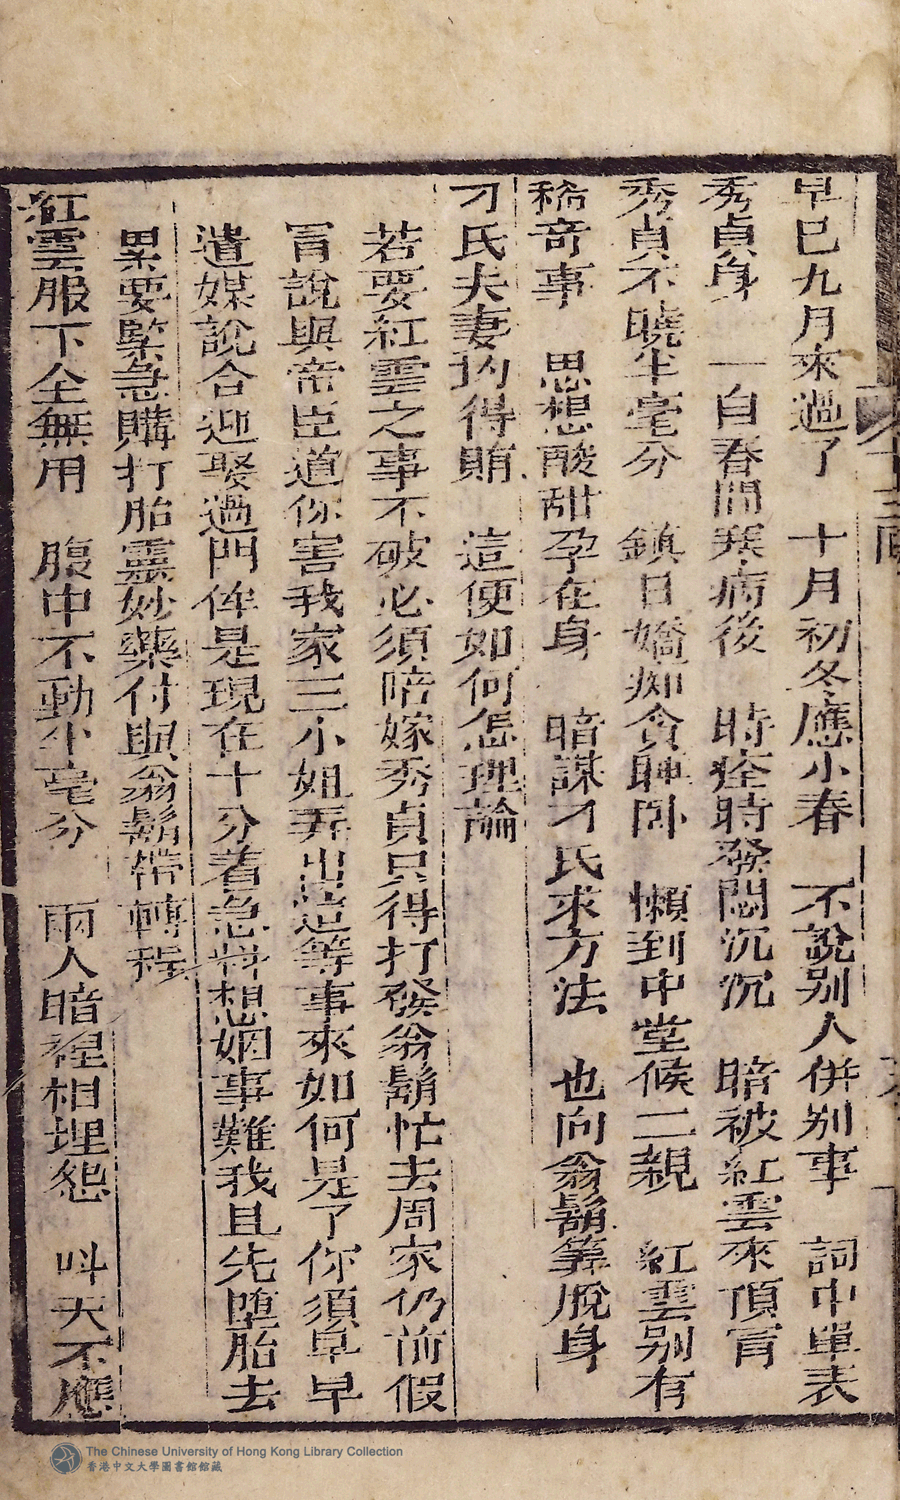 早已九月來過了　十月初冬應小春　不說别人併别事　詞中单表
秀貞身　一自春間疾病後　時痊時發悶沉沉　暗被紅雲來頂冐
秀貞不曉半毫分　鎮日嬌痴貪睡卧　懶到中堂候二親　紅雲别有
稀奇事　思想酸甜孕在身　暗謀刁氏求方法　也向翁鬍筭脫身
刁氏夫妻均得賄　這便如何怎理論
若要紅雲之事不破必須陪嫁秀貞只得打發翁鬍忙去周家仍前假
冐說與帝臣道你害我家三小姐弄出這等事來如何是了你須早早
遣媒說合迎娶過門倖是現在十分着急料想姻事難我且先墮胎去
累要緊急購打胎靈妙藥付與翁鬍帶轉程
紅雲服下全無用　腹中不動半毫分　兩人暗裡相埋怨　呌天不應
十三囘
The Chinese University of Hong Kong Library Collection
香港中文大學圖書館館藏